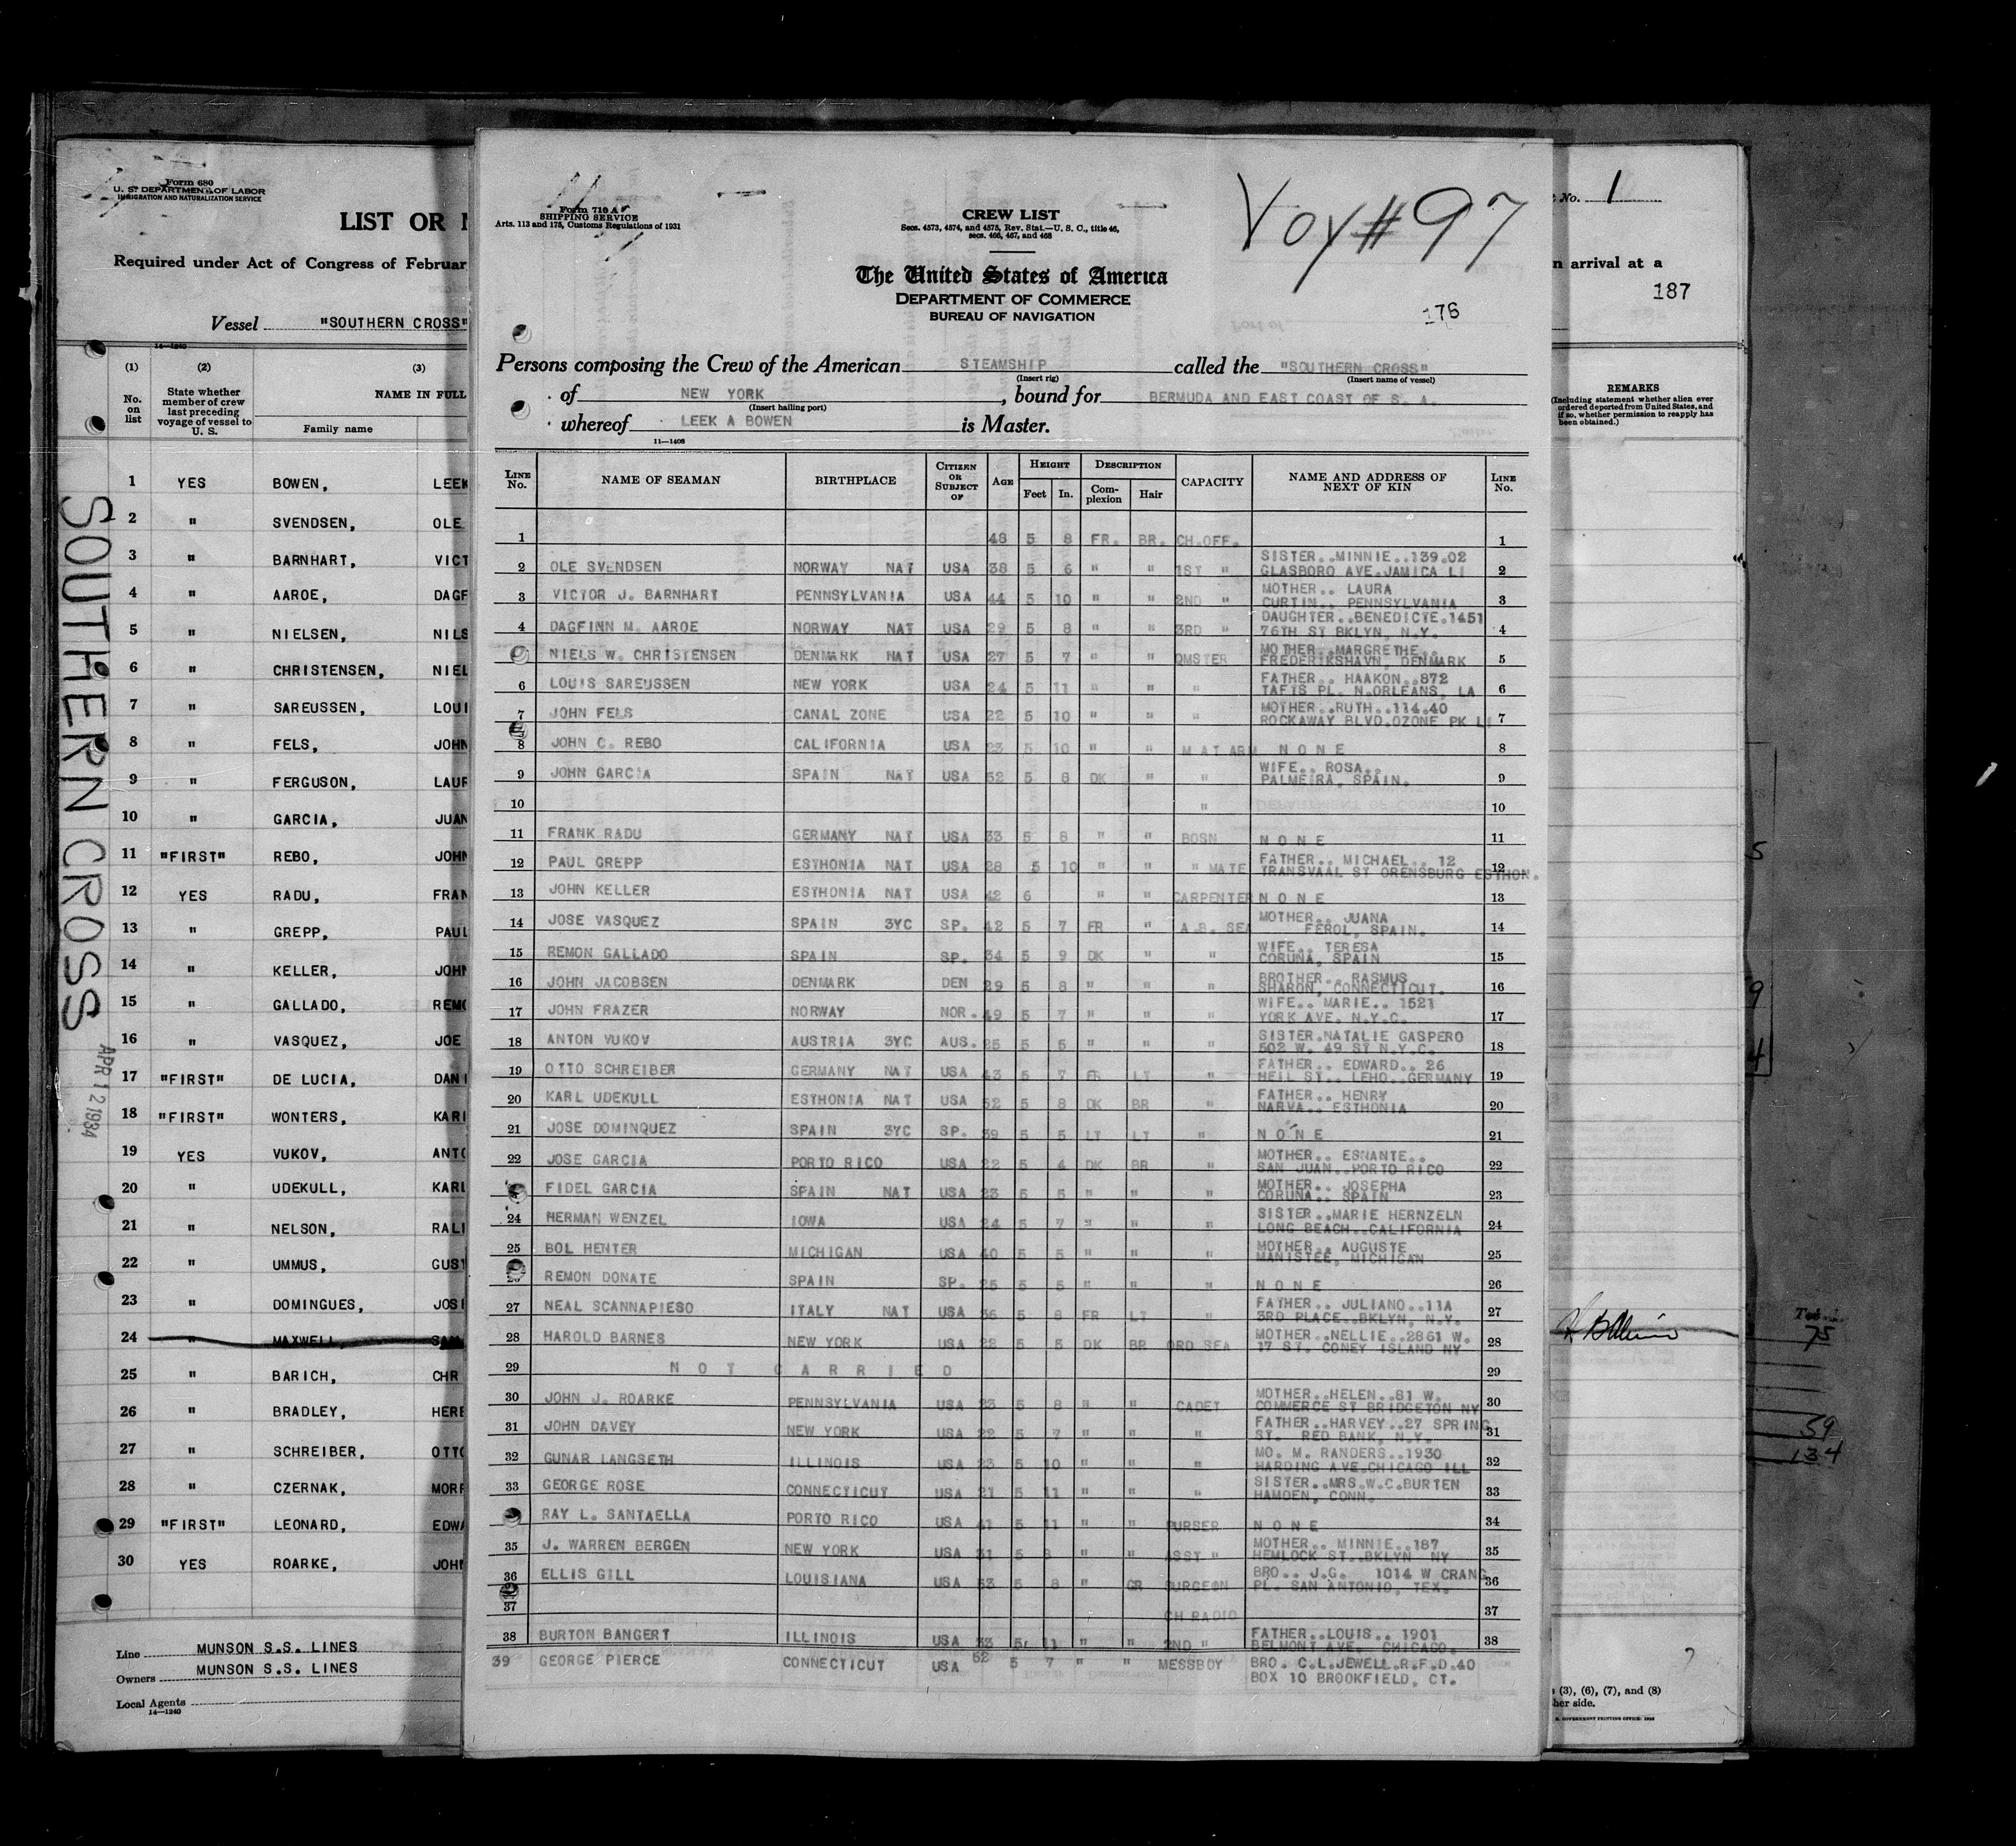 Form 680
U. S. DEPARTMENT OF LABOR
IMMIGRATION AND NATURALIZATION SERVICE
LIST OR
Required under Act of Congress of Februar
Vessel "SOUTHERN CROSS"
14—1240
(1) (2) (3)
No. on list
State whether member of crew last preceding voyage of vessel to U. S.
NAME IN FULL
Family name
1 YES BOWEN, LEEK
2 " SVENDSEN, OLE
3 " BARNHART, VICT
4 " AAROE, DAGF
5 " NIELSEN, NILS
6 " CHRISTENSEN, NIEL
7 " SAREUSSEN, LOUI
8 " FELS, JOHN
9 " FERGUSON, LAUR
10 " GARCIA, JUAN
11 "FIRST" REBO, JOHN
12 YES RADU, FRAN
13 " GREPP, PAUL
14 " KELLER, JOHN
15 " GALLADO, REMO
16 " VASQUEZ, JOE
17 "FIRST" DE LUCIA, DANI
18 "FIRST" WONTERS, KARI
19 YES VUKOV, ANTO
20 " UDEKULL, KARL
21 " NELSON, RALI
22 " UMMUS, GUST
23 " DOMINGUES, JOSI
24 " MAXWELL, SAM
25 " BARICH, CHR
26 " BRADLEY, HERB
27 " SCHREIBER, OTTO
28 " CZERNAK, MORR
29 "FIRST" LEONARD, EDWA
30 YES ROARKE, JOHN
Line MUNSON S.S. LINES
Owners MUNSON S.S. LINES
Local Agents
14—1240
SOUTHERN CROSS
APR 12 1934
Form 710 A
SHIPPING SERVICE
Arts. 113 and 175, Customs Regulations of 1931
CREW LIST
Secs. 4573, 4574, and 4575, Rev. Stat.—U. S. C., title 46,
secs. 466, 467, and 468
Voy # 97
The United States of America
DEPARTMENT OF COMMERCE
BUREAU OF NAVIGATION
176
Persons composing the Crew of the American STEAMSHIP called the "SOUTHERN CROSS"
(Insert rig) (Insert name of vessel)
of NEW YORK, bound for BERMUDA AND EAST COAST OF S. A.
(Insert hailing port)
whereof LEEK A BOWEN is Master.
11—1408
LINE No. NAME OF SEAMAN BIRTHPLACE CITIZEN OR SUBJECT OF AGE HEIGHT Feet In. DESCRIPTION Complexion Hair CAPACITY NAME AND ADDRESS OF NEXT OF KIN LINE No.
1 48 5 8 FR. BR. CH.OFF. 1
2 OLE SVENDSEN NORWAY NAT USA 38 5 6 " " 1ST " SISTER..MINNIE..139.02 GLASBORO AVE.JAMICA LI 2
3 VICTOR J. BARNHART PENNSYLVANIA USA 44 5 10 " " 2ND " MOTHER.. LAURA CURTIN.. PENNSYLVANIA 3
4 DAGFINN M. AAROE NORWAY NAT USA 29 5 8 " " 3RD " DAUGHTER..BENEDICTE.1451 76TH ST BKLYN, N.Y. 4
NIELS W. CHRISTENSEN DENMARK NAT USA 27 5 7 " " QMSTER MOTHER..MARGRETHE.. FREDERIKSHAVN, DENMARK 5
6 LOUIS SAREUSSEN NEW YORK USA 24 5 11 " " " FATHER.. HAAKON..872 TAFTS PL. N.ORLEANS, LA 6
7 JOHN FELS CANAL ZONE USA 22 5 10 " " " MOTHER..RUTH..114.40 ROCKAWAY BLVD.OZONE PK LI 7
8 JOHN C. REBO CALIFORNIA USA 23 5 10 " " M AT ARM NONE 8
9 JOHN GARCIA SPAIN NAT USA 52 5 8 DK " " WIFE.. ROSA.. PALMEIRA, SPAIN. 9
10 " 10
11 FRANK RADU GERMANY NAT USA 33 5 8 " " BOSN NONE 11
12 PAUL GREPP ESTHONIA NAT USA 28 5 10 " " " MATE FATHER.. MICHAEL.. 12 TRANSVAAL ST ORENSBURG ESTHON. 12
13 JOHN KELLER ESTHONIA NAT USA 42 6 " " CARPENTER NONE 13
14 JOSE VASQUEZ SPAIN 3YC SP. 42 5 7 FR " A.B. SEA MOTHER.. JUANA FEROL, SPAIN. 14
15 REMON GALLADO SPAIN SP. 34 5 9 DK " " WIFE.. TERESA CORUNA, SPAIN 15
16 JOHN JACOBSEN DENMARK DEN 29 5 8 " " " BROTHER.. RASMUS SHARON, CONNECTICUT. 16
17 JOHN FRAZER NORWAY NOR. 49 5 7 " " " WIFE.. MARIE.. 1521 YORK AVE. N.Y.C. 17
18 ANTON VUKOV AUSTRIA 3YC AUS. 25 5 5 " " " SISTER.NATALIE GASPERO 502 W. 49 ST N.Y.C. 18
19 OTTO SCHREIBER GERMANY NAT USA 43 5 7 FR LT " FATHER.. EDWARD.. 26 HEIL ST.. LEHO..GERMANY 19
20 KARL UDEKULL ESTHONIA NAT USA 52 5 8 DK BR " FATHER.. HENRY NARVA.. ESTHONIA 20
21 JOSE DOMINQUEZ SPAIN 3YC SP. 39 5 5 LT LT " NONE 21
22 JOSE GARCIA PORTO RICO USA 22 5 4 DK BR " MOTHER.. ESNANTE.. SAN JUAN..PORTO RICO 22
FIDEL GARCIA SPAIN NAT USA 23 5 5 " " " MOTHER.. JOSEPHA CORUNA.. SPAIN 23
24 HERMAN WENZEL IOWA USA 24 5 7 " " " SISTER..MARIE HERNZELN LONG BEACH..CALIFORNIA 24
25 BOL HENTER MICHIGAN USA 40 5 5 " " " MOTHER.. AUGUSTE MANISTEE, MICHIGAN 25
26 REMON DONATE SPAIN SP. 25 5 5 " " " NONE 26
27 NEAL SCANNAPIESO ITALY NAT USA 36 5 8 FR LT " FATHER.. JULIANO..11A 3RD PLACE..BKLYN, N.Y. 27
28 HAROLD BARNES NEW YORK USA 22 5 5 DK BR ORD SEA MOTHER..NELLIE..2861 W. 17 ST. CONEY ISLAND NY 28
29 NOT CARRIED 29
30 JOHN J. ROARKE PENNSYLVANIA USA 23 5 8 " " CADET MOTHER..HELEN..81 W. COMMERCE ST BRIDGETON NY 30
31 JOHN DAVEY NEW YORK USA 22 5 7 " " " FATHER..HARVEY..27 SPRING ST. RED BANK, N.Y. 31
32 GUNAR LANGSETH ILLINOIS USA 23 5 10 " " " MO. M. RANDERS..1930 HARDING AVE.CHICAGO ILL 32
33 GEORGE ROSE CONNECTICUT USA 21 5 11 " " " SISTER..MRS.W.C.BURTEN HAMDEN, CONN. 33
RAY L. SANTAELLA PORTO RICO USA 41 5 11 " " PURSER NONE 34
35 J. WARREN BERGEN NEW YORK USA 31 5 8 " " ASST " MOTHER.. MINNIE..187 HEMLOCK ST..BKLYN NY 35
36 ELLIS GILL LOUISIANA USA 53 5 8 " GR SURGEON BRO.. J.G. 1014 W CRANG PL. SAN ANTONIO, TEX. 36
37 CH RADIO 37
38 BURTON BANGERT ILLINOIS USA 33 5 11 " " 2ND " FATHER..LOUIS.. 1901 BELMONT AVE. CHICAGO. 38
39 GEORGE PIERCE CONNECTICUT USA 52 5 7 " " MESSBOY BRO. C.L.JEWELL.R.F.D.40 BOX 10 BROOKFIELD, CT.
No. 1
n arrival at a
187
REMARKS
(Including statement whether alien ever ordered deported from United States, and if so, whether permission to reapply has been obtained.)
5
9
4
75
59
134
(3), (6), (7), and (8)
her side.
GOVERNMENT PRINTING OFFICE